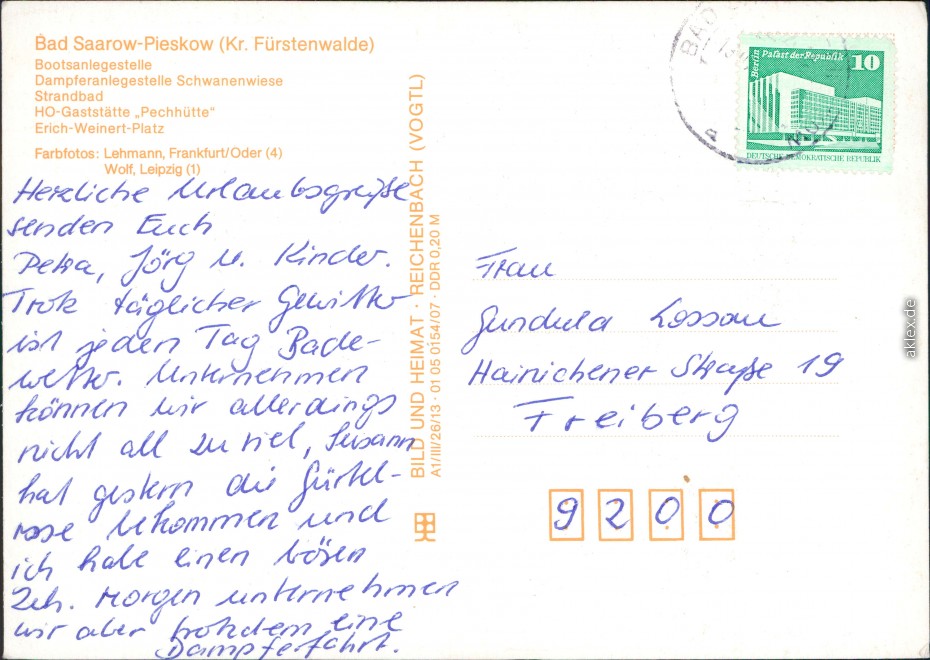 Bad Saarow-Pieskow (Kr. Fürstenwalde)
Bootsanlegestelle
Dampferanlegestelle Schwanenwiese
Strandbad
HO-Gaststätte „Pechhütte"
Erich-Weinert-Platz
Farbfotos: Lehmann, Frankfurt/Oder (4)
Wolf, Leipzig (1)
Herzliche Urlaubsgrüße
senden Euch
Petra, Jörg u. Kinder.
Trotz täglicher Gewitter
ist jeden Tag Bade-
wetter. Unternehmen
können wir allerdings
nicht all zu viel, Susann
hat gestern die Gürtel-
rose bekommen und
ich habe einen bösen
Zeh. Morgen unternehmen
wir aber trotzdem eine
Dampferfahrt.
BILD UND HEIMAT · REICHENBACH (VOGTL)
A1/III/26/13 · 01 05 0154/07 · DDR 0,20 M
BAD
Berlin Palast der Republik 10
DEUTSCHE DEMOKRATISCHE REPUBLIK
Frau
Gundula Lossau
Hainichener Straße 19
Freiberg
9200
aklex.de